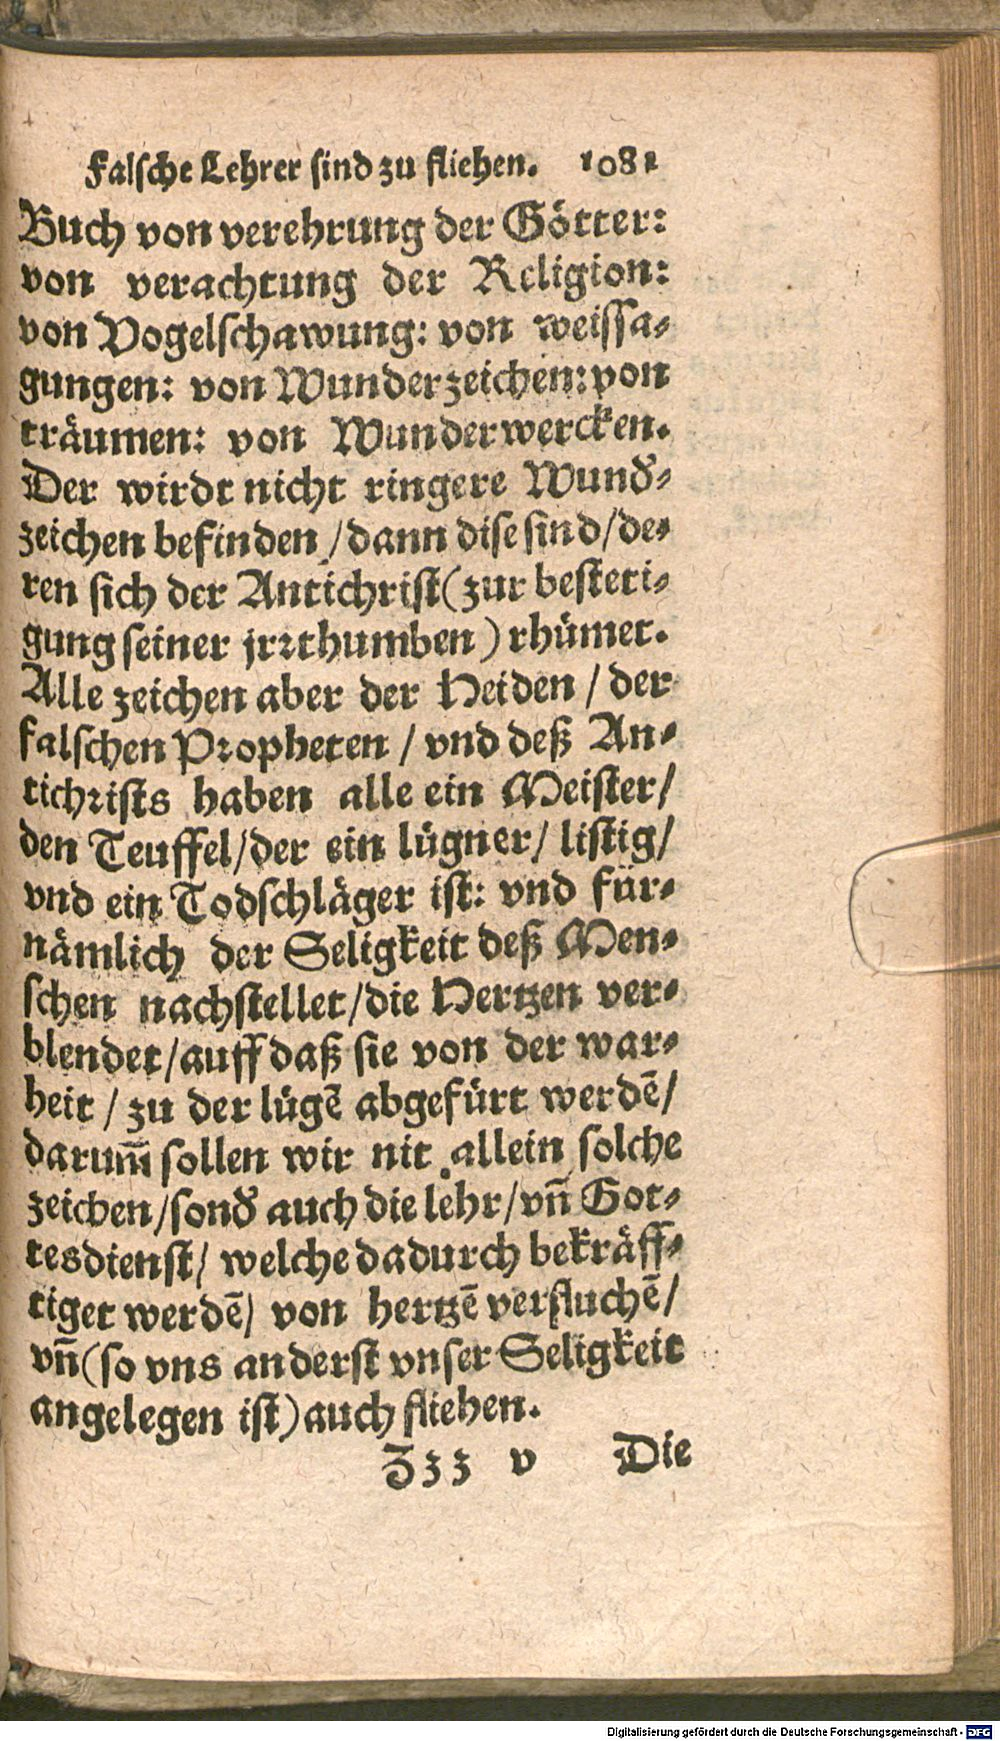 Falsche Lehrer sind zu fliehen. 1081
Buch von verehrung der Götter:
von verachtung der Religion:
von Vogelschawung: von weissa-
gungen: von Wunderzeichen: von
träumen: von Wunderwercken.
Der wirdt nicht ringere Wund-
zeichen befinden / dann dise sind / de-
ren sich der Antichrist (zur besteti-
gung seiner jrrthumben) rhümet.
Alle zeichen aber der Heiden / der
falschen Propheten / vnd deß An-
tichrists haben alle ein Meister /
den Teuffel / der ein lügner / listig /
vnd ein Todschläger ist: vnd für-
nämlich der Seligkeit deß Men-
schen nachstellet / die Hertzen ver-
blendet / auff daß sie von der war-
heit / zu der lügẽ abgefürt werdẽ /
darum̃ sollen wir nit allein solche
zeichen / sond auch die lehr / vñ Got-
tesdienst / welche dadurch bekräff-
tiget werdẽ / von hertzẽ verfluchẽ /
vñ (so vns anderst vnser Seligkeit
angelegen ist) auch fliehen.
Zzz v Die
Digitalisierung gefördert durch die Deutsche Forschungsgemeinschaft - DFG